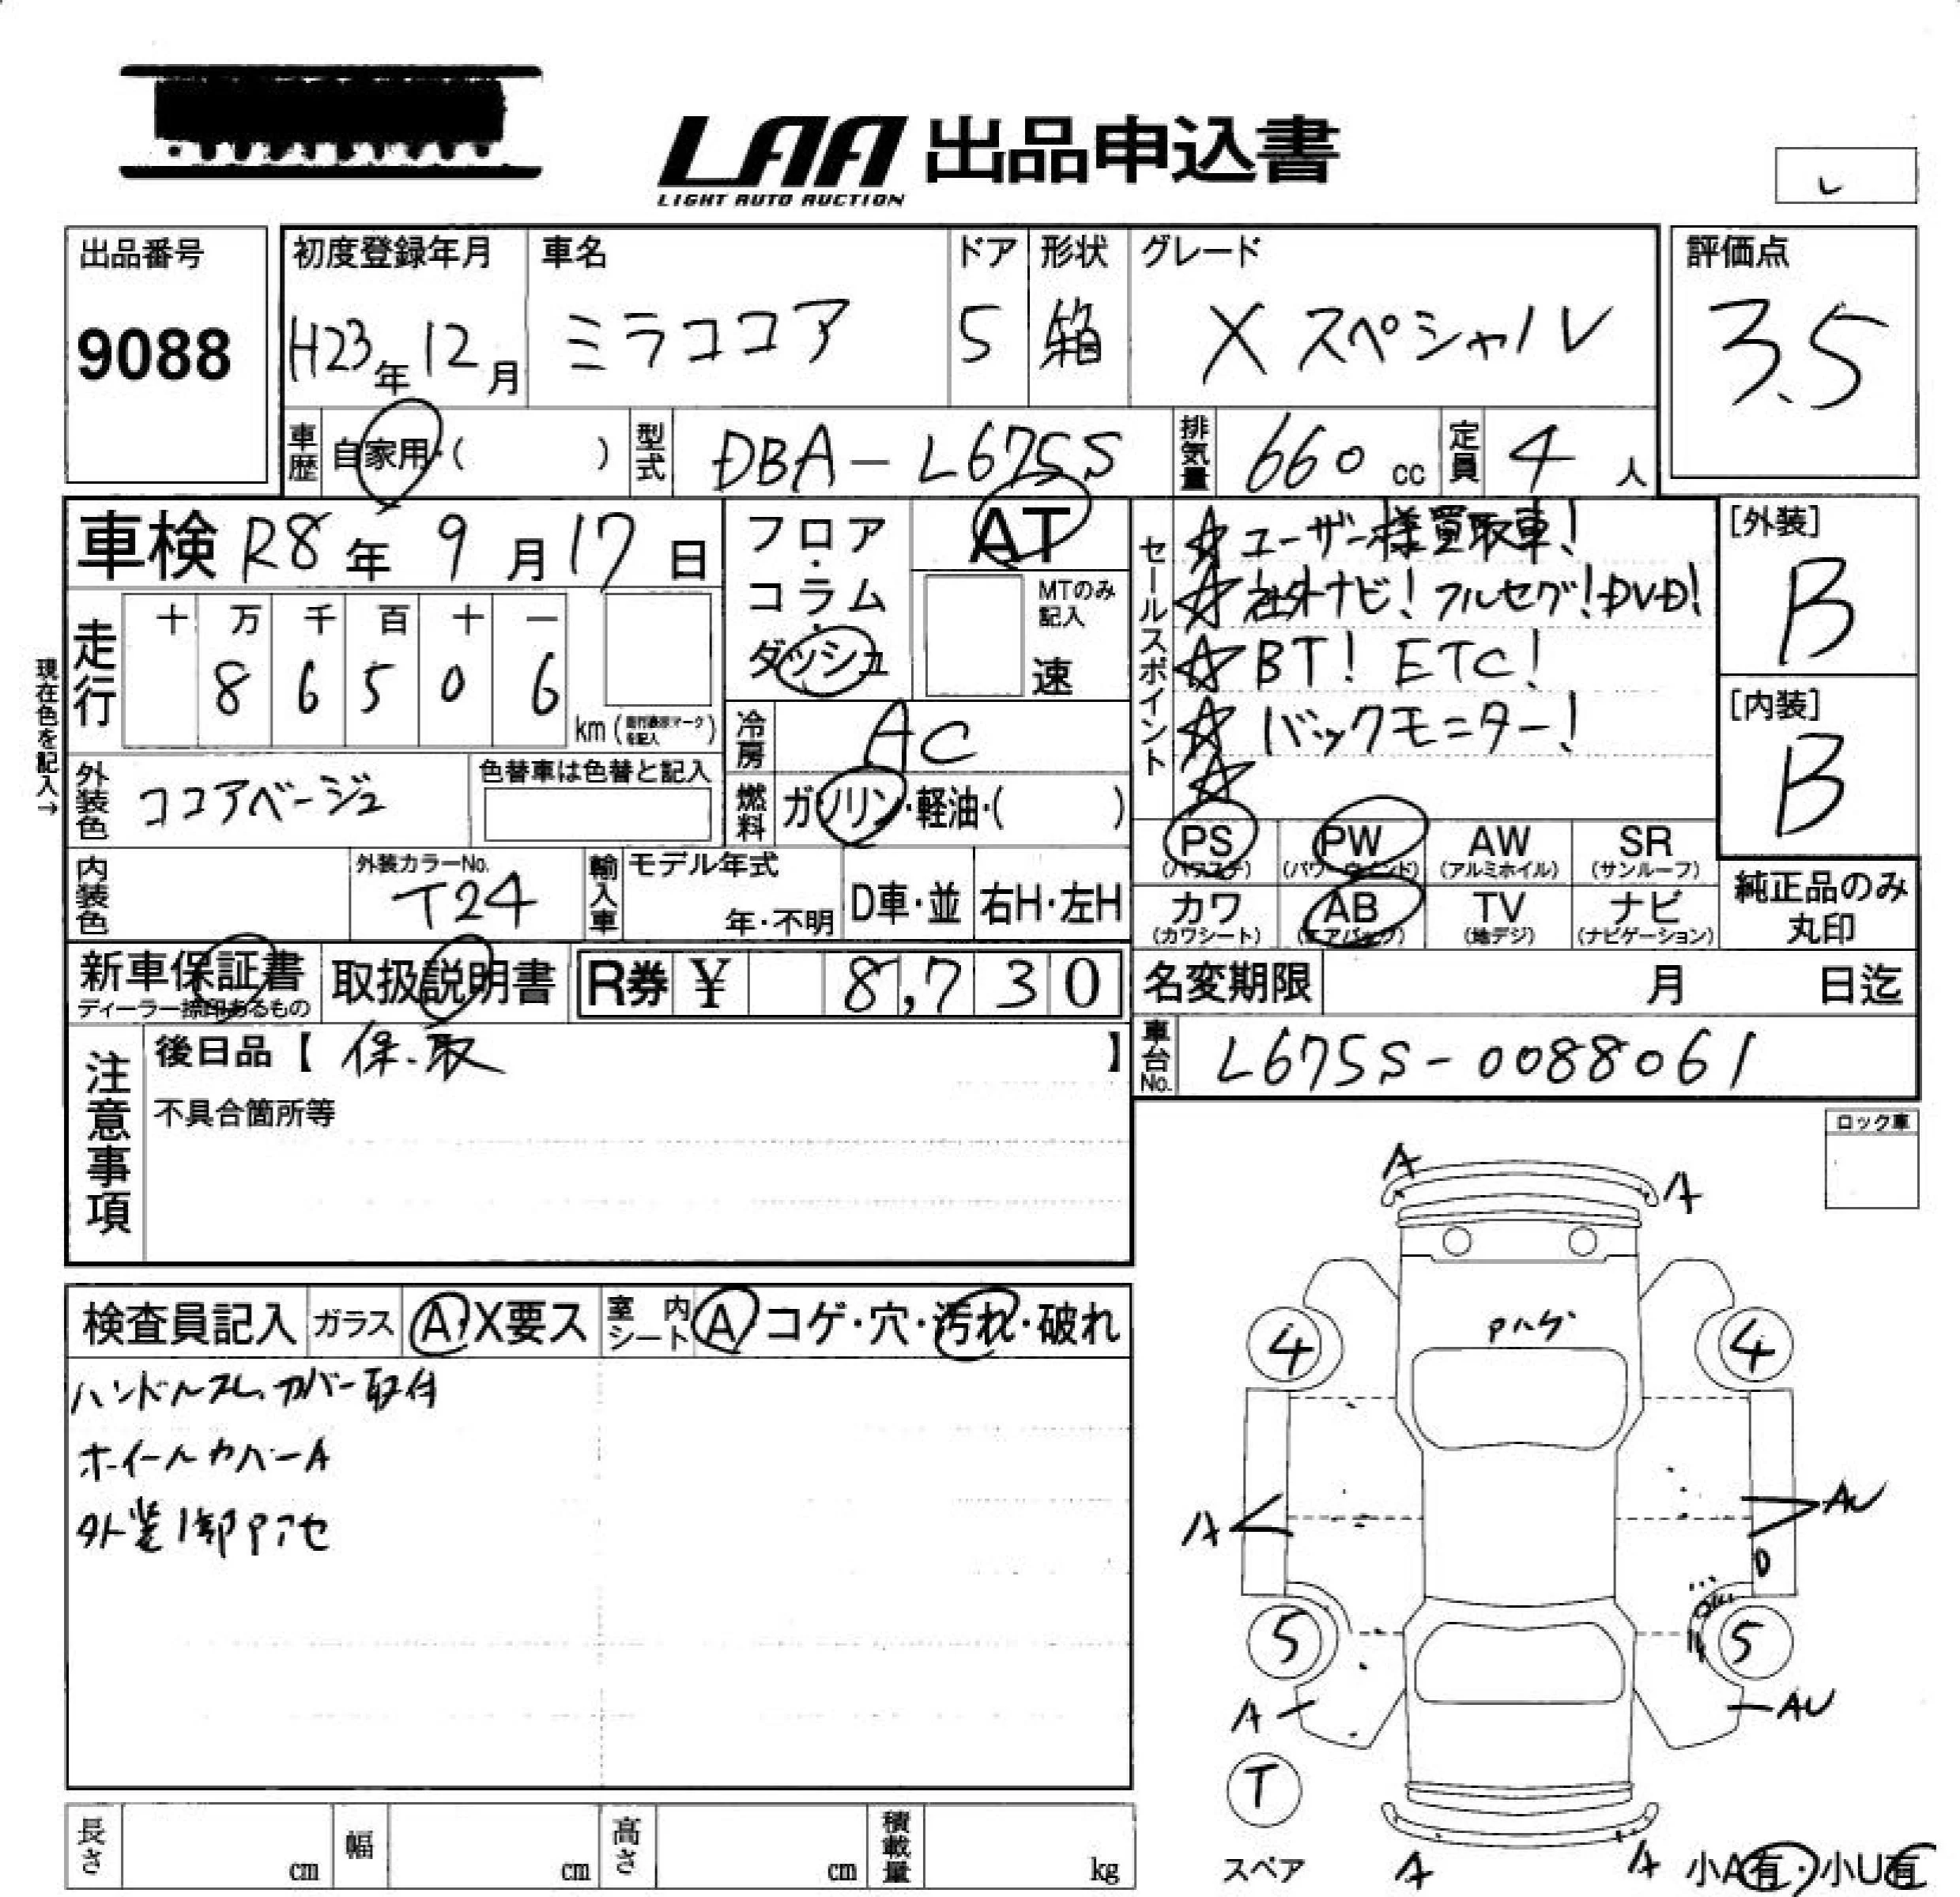 LAA 出品申込書
LIGHT AUTO AUCTION
レ
出品番号
9088
初度登録年月
H23年12月
車名
ミラココア
ドア
5
形状
箱
グレード
Xスペシャル
評価点
3.5
車歴 自家用・( )
型式 DBA-L675S
排気量 660 cc
定員 4 人
車検 R8年9月17日
走行 十 万 千 百 十 一
8 6 5 0 6
km(走行表示マークを記入)
現在色を記入→
外装色 ココアベージュ
色替車は色替と記入
内装色
外装カラーNo.
T24
フロア・コラム・ダッシュ
AT
MTのみ記入
速
冷房 AC
燃料 ガソリン・軽油・( )
輸入車 モデル年式
年・不明
D車・並
右H・左H
セールスポイント
☆ユーザー様買取車!
☆社外ナビ!フルセグ!DVD!
☆BT! ETC!
☆バックモニター!
☆
[外装]
B
[内装]
B
PS (パワステ)
PW (パワーウインド)
AW (アルミホイル)
SR (サンルーフ)
カワ (カワシート)
AB (エアバッグ)
TV (地デジ)
ナビ (ナビゲーション)
純正品のみ丸印
新車保証書
ディーラー捺印あるもの
取扱説明書
R券 ¥ 8,730
名変期限 月 日迄
車台No. L675S-0088061
注意事項
後日品【保.取 】
不具合箇所等
ロック車
検査員記入
ガラス A・X要ス
室内シート A コゲ・穴・汚れ・破れ
ハンドルスレ、カバー取付
ホイールカバーA
外装1部Pアセ
A
A
Pハゲ
4
4
A
AU
D
5
5
A
AU
T
スペア
A
A
小A有・小U有
長さ cm
幅 cm
高さ cm
積載量 kg